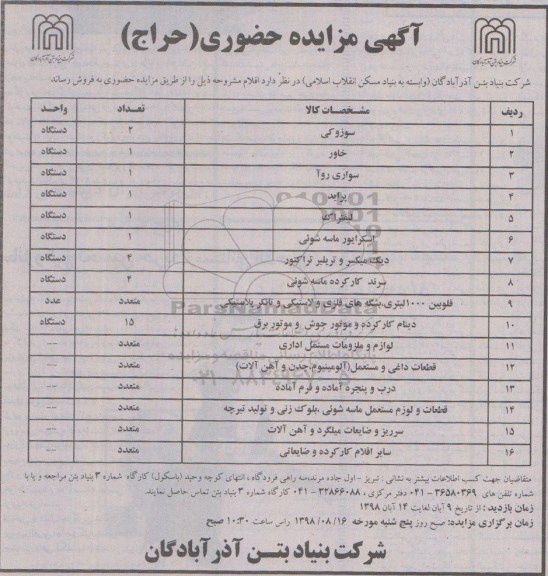 آگهی مزایده حضوری(حراج)
شرکت بنیاد بتن آذرآبادگان
شرکت بنیاد بتن آذرآبادگان
شرکت بنیاد بتن آذرآبادگان (وابسته به بنیاد مسکن انقلاب اسلامی) در نظر دارد اقلام مشروحه ذیل را از طریق مزایده حضوری به فروش رساند
ردیف مشخصات کالا تعداد واحد
۱ سوزوکی ۲ دستگاه
۲ خاور ۱ دستگاه
۳ سواری روآ ۱ دستگاه
۴ پراید ۱ دستگاه
۵ لیفتراک ۱ دستگاه
۶ اسکراپور ماسه شوئی ۱ دستگاه
۷ دیگ میکسر و تریلیر تراکتور ۴ دستگاه
۸ سرند کارکرده ماسه شوئی ۲ دستگاه
۹ قلوبین ۱۰۰۰لیتری،بشکه های فلزی و لاستیکی و تانکر پلاستیکی متعدد عدد
۱۰ دینام کارکرده و موتور جوش و موتور برق ۱۵ دستگاه
۱۱ لوازم و ملزومات مستمل اداری متعدد ---
۱۲ قطعات داغی و مستعمل(آلومینیوم،چدن و آهن آلات) متعدد ---
۱۳ درب و پنجره آماده و فرم آماده متعدد ---
۱۴ قطعات و لوزم مستعمل ماسه شوئی ،بلوک زنی و تولید تیرچه متعدد ---
۱۵ سرریز و ضایعات میلگرد و آهن آلات متعدد ---
۱۶ سایر اقلام کارکرده و ضایعاتی متعدد ---
ParsNamadData
۰۲۱-۸۸۳۴۹۶۷۰-۵
متقاضیان جهت کسب اطلاعات بیشتر به نشانی : تبریز - اول جاده مرند،سه راهی فرودگاه ، انتهای کوچه وحید (باسکول) کارگاه شماره ۳ بنیاد بتن مراجعه و یا با
شماره تلفن های ۳۶۵۸۰۳۶۹ - ۰۴۱ دفتر مرکزی ، ۳۲۸۶۶۰۸۸ - ۰۴۱ کارگاه شماره ۳ بنیاد بتن تماس حاصل نمایند.
زمان بازدید : از تاریخ ۹ آبان لغایت ۱۴ آبان ۱۳۹۸
زمان برگزاری مزایده: صبح روز پنج شنبه مورخه ۱۶/ ۰۸/ ۱۳۹۸ راس ساعت ۱۰:۳۰ صبح
شرکت بنیاد بتن آذرآبادگان